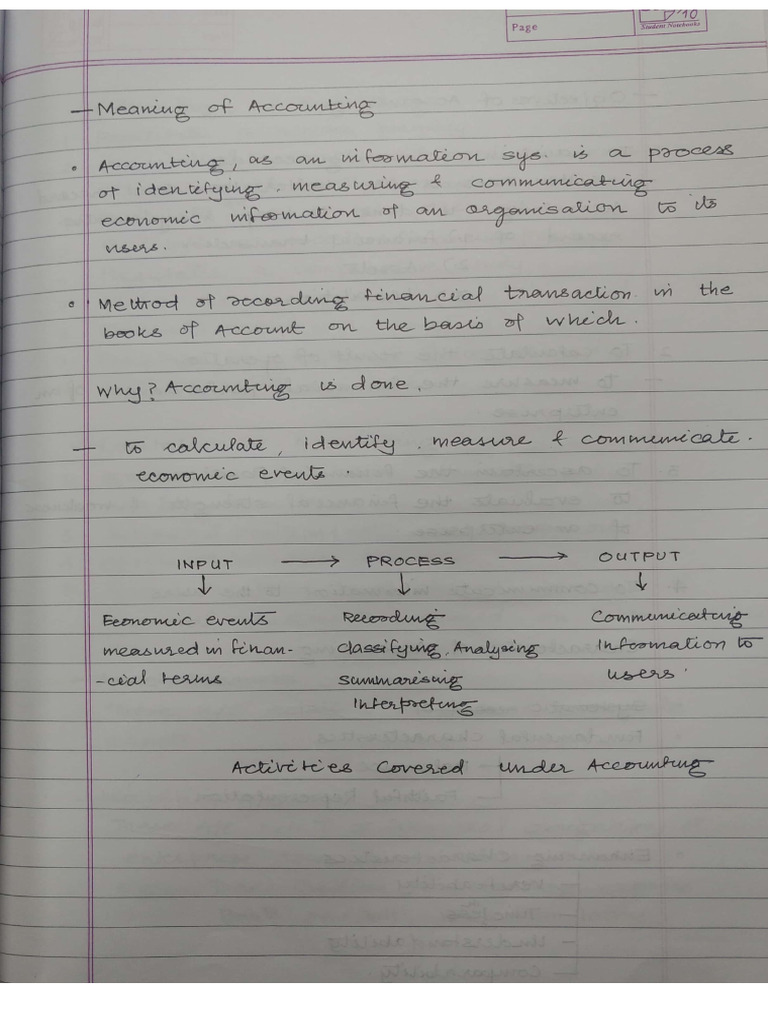 10
Page
Student Notebooks
— Meaning of Accounting
• Accounting, as an information sys. is a process
of identifying, measuring & communicating
economic information of an organisation to its
users.
• Method of recording financial transaction in the
books of Account on the basis of which.
Why? Accounting is done.
— to calculate, identify, measure & communicate.
economic events.
INPUT → PROCESS → OUTPUT
↓ ↓ ↓
Economic events Recording Communicating
measured in finan- classifying, Analysing Information to
-cial terms summarising users.
Interpreting
Activities Covered under Accounting